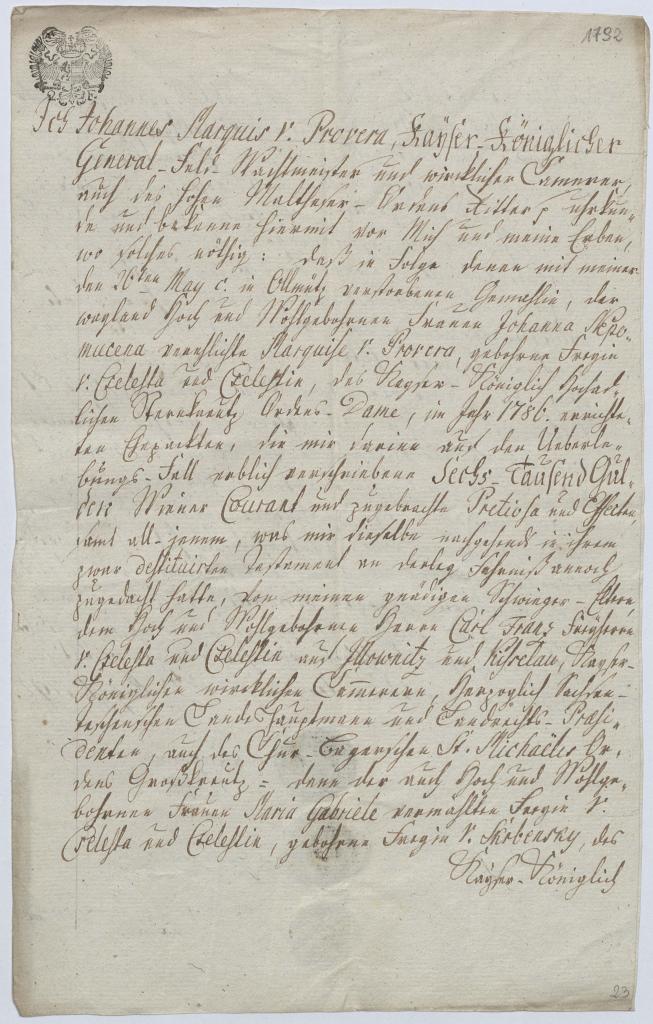 1792
Ich Johannes Marquis v. Provera, Kayser-Königlicher
General-Feld-Wachtmeister und wircklicher Camerer,
auch des hohen Maltheser-Ordens Ritter, uhrkun-
de und bekenne hiermit vor Mich und meine Erben,
wo solches nöthig: daß in Folge deren mit meiner
den 26ten May c. in Ollmütz verstorbenen Gemahlin, der
wayland Hoch und Wohlgebohrnen Frauen Johanna Nepo-
mucena verehlichte Marquise v. Provera, gebohrne Freyin
v. Czelesta und Czelestin, des Kayser-Königlich hochad-
lichen Sternkreutz Ordens-Dame, im Jahr 1786. errichte-
ten Ehepackten, die mir darinn auf den Ueberle-
bungs-Fall erblich verschriebene Sechs-Tausend Gul-
den Wiener Courant und zugebrachte Pretiosa und Effecten,
samt all-jenem, was mir dieselbe nachgehends in ihrem
zwar destituirten Testament an derley Fahrniß annoch
zugedacht hatte, von meinen gnädigen Schwieger-Eltern,
dem Hoch und Wohlgebohrnen Herrn Carl Franz Freyherrn
v. Czelesta und Czelestin auf und, Kayser-
Königlichen wircklichen Cammerern, Herzoglich Sachsen-
teschenschen Landes Hauptmann und Landrechts-Präsi-
denten, auch des Chur-Bayerschen St. Michaëlis Or-
dens Großkreutz = dann der auch Hoch und Wohlge-
bohrnen Frauen Maria Gabriele vermählten Freyin v.
Czelesta und Czelestin, gebohrne Freyin v. Skrbensky, des
Kayser-Königlich
23